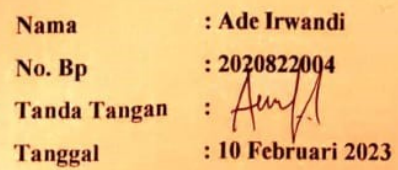 Nama : Ade Irwandi
No. Bp : 2020822004
Tanda Tangan :
Tanggal : 10 Februari 2023